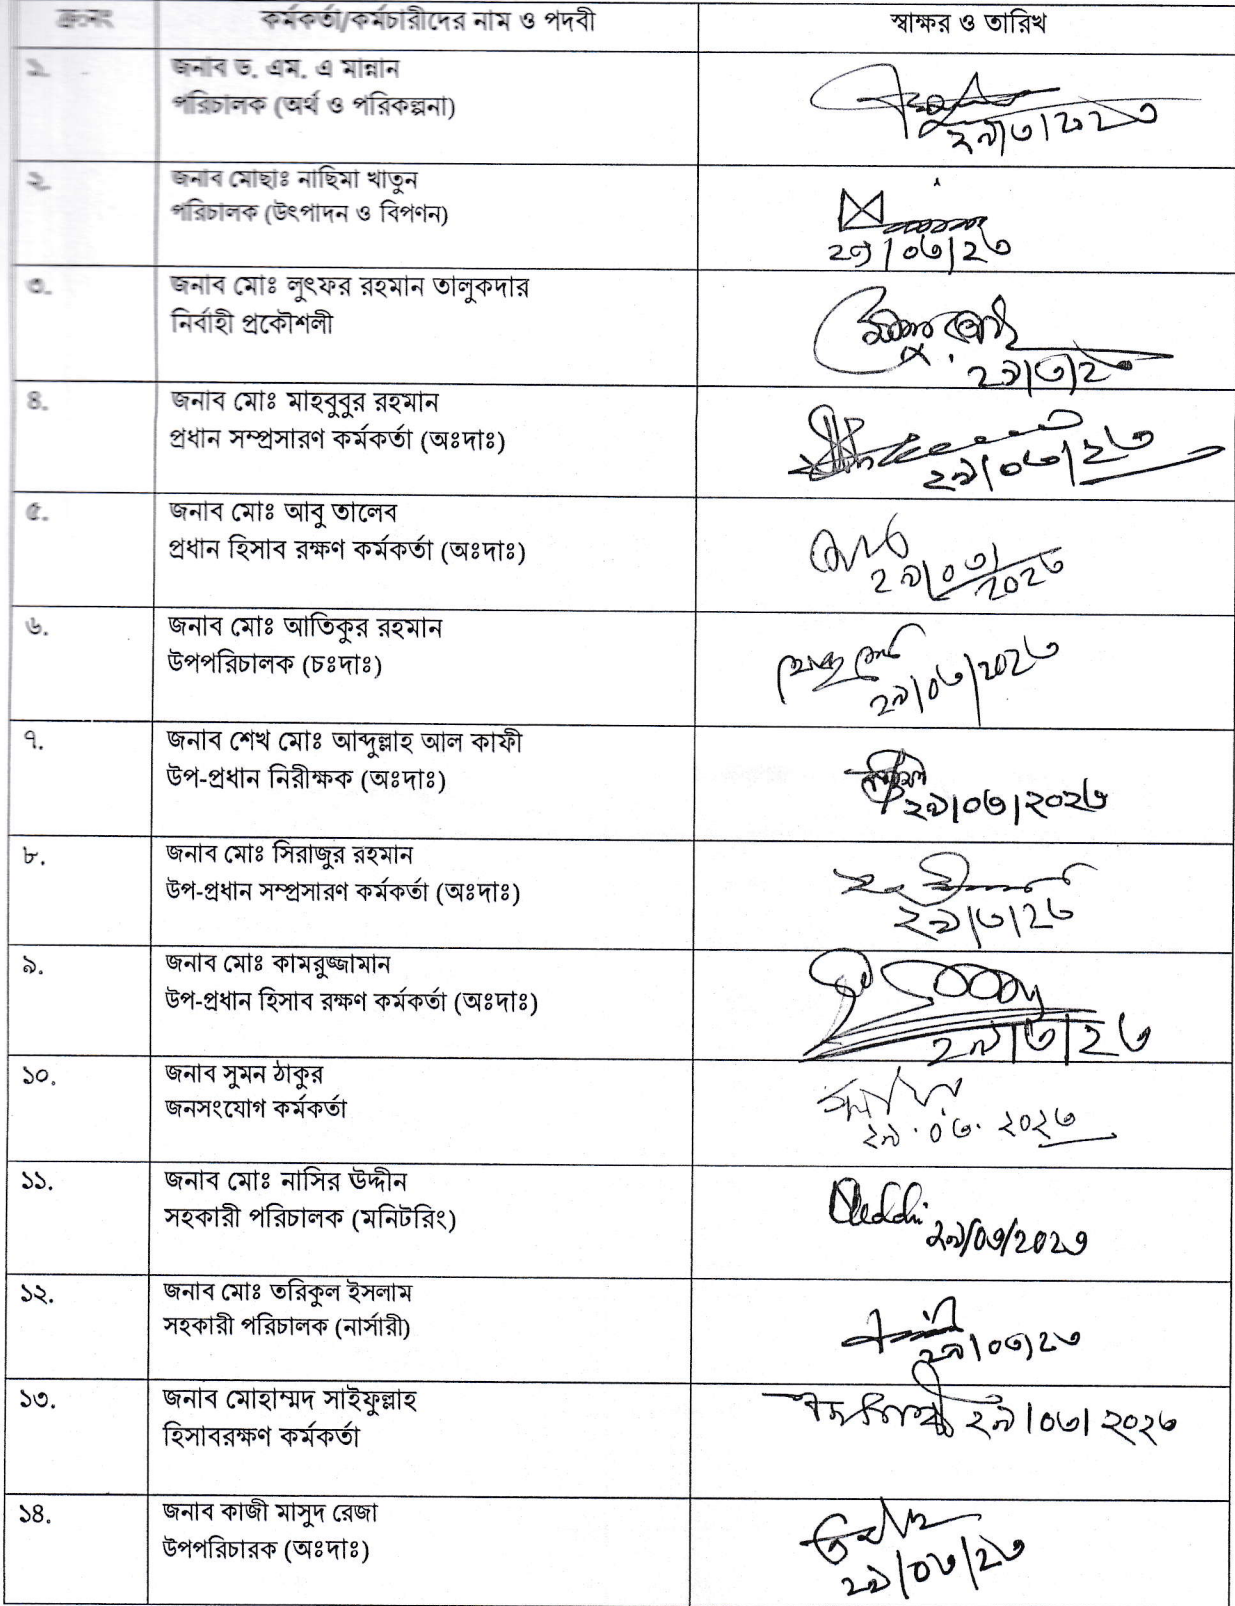 ক্রঃনং কর্মকর্তা/কর্মচারীদের নাম ও পদবী স্বাক্ষর ও তারিখ
১. জনাব ড. এম. এ মান্নান
পরিচালক (অর্থ ও পরিকল্পনা)
২৯/৩/২০২৩
২. জনাব মোছাঃ নাছিমা খাতুন
পরিচালক (উৎপাদন ও বিপণন)
২৯/০৩/২৩
৩. জনাব মোঃ লুৎফর রহমান তালুকদার
নির্বাহী প্রকৌশলী
২৯/৩/২৩
৪. জনাব মোঃ মাহবুবুর রহমান
প্রধান সম্প্রসারণ কর্মকর্তা (অঃদাঃ)
২৯/০৩/২৩
৫. জনাব মোঃ আবু তালেব
প্রধান হিসাব রক্ষণ কর্মকর্তা (অঃদাঃ)
২৯/০৩/
২০২৩
৬. জনাব মোঃ আতিকুর রহমান
উপপরিচালক (চঃদাঃ)
২৯/০৩/২০২৩
৭. জনাব শেখ মোঃ আব্দুল্লাহ আল কাফী
উপ-প্রধান নিরীক্ষক (অঃদাঃ)
২৯/০৩/২০২৩
৮. জনাব মোঃ সিরাজুর রহমান
উপ-প্রধান সম্প্রসারণ কর্মকর্তা (অঃদাঃ)
২৯/৩/২৩
৯. জনাব মোঃ কামরুজ্জামান
উপ-প্রধান হিসাব রক্ষণ কর্মকর্তা (অঃদাঃ)
২৯/৩/২৩
১০. জনাব সুমন ঠাকুর
জনসংযোগ কর্মকর্তা
২৯.০৩.২০২৩
১১. জনাব মোঃ নাসির উদ্দীন
সহকারী পরিচালক (মনিটরিং)
২৯/০৩/২০২৩
১২. জনাব মোঃ তরিকুল ইসলাম
সহকারী পরিচালক (নার্সারী)
২৯/০৩/২৩
১৩. জনাব মোহাম্মদ সাইফুল্লাহ
হিসাবরক্ষণ কর্মকর্তা
২৯/০৩/২০২৩
১৪. জনাব কাজী মাসুদ রেজা
উপপরিচারক (অঃদাঃ)
২৯/০৩/২৩